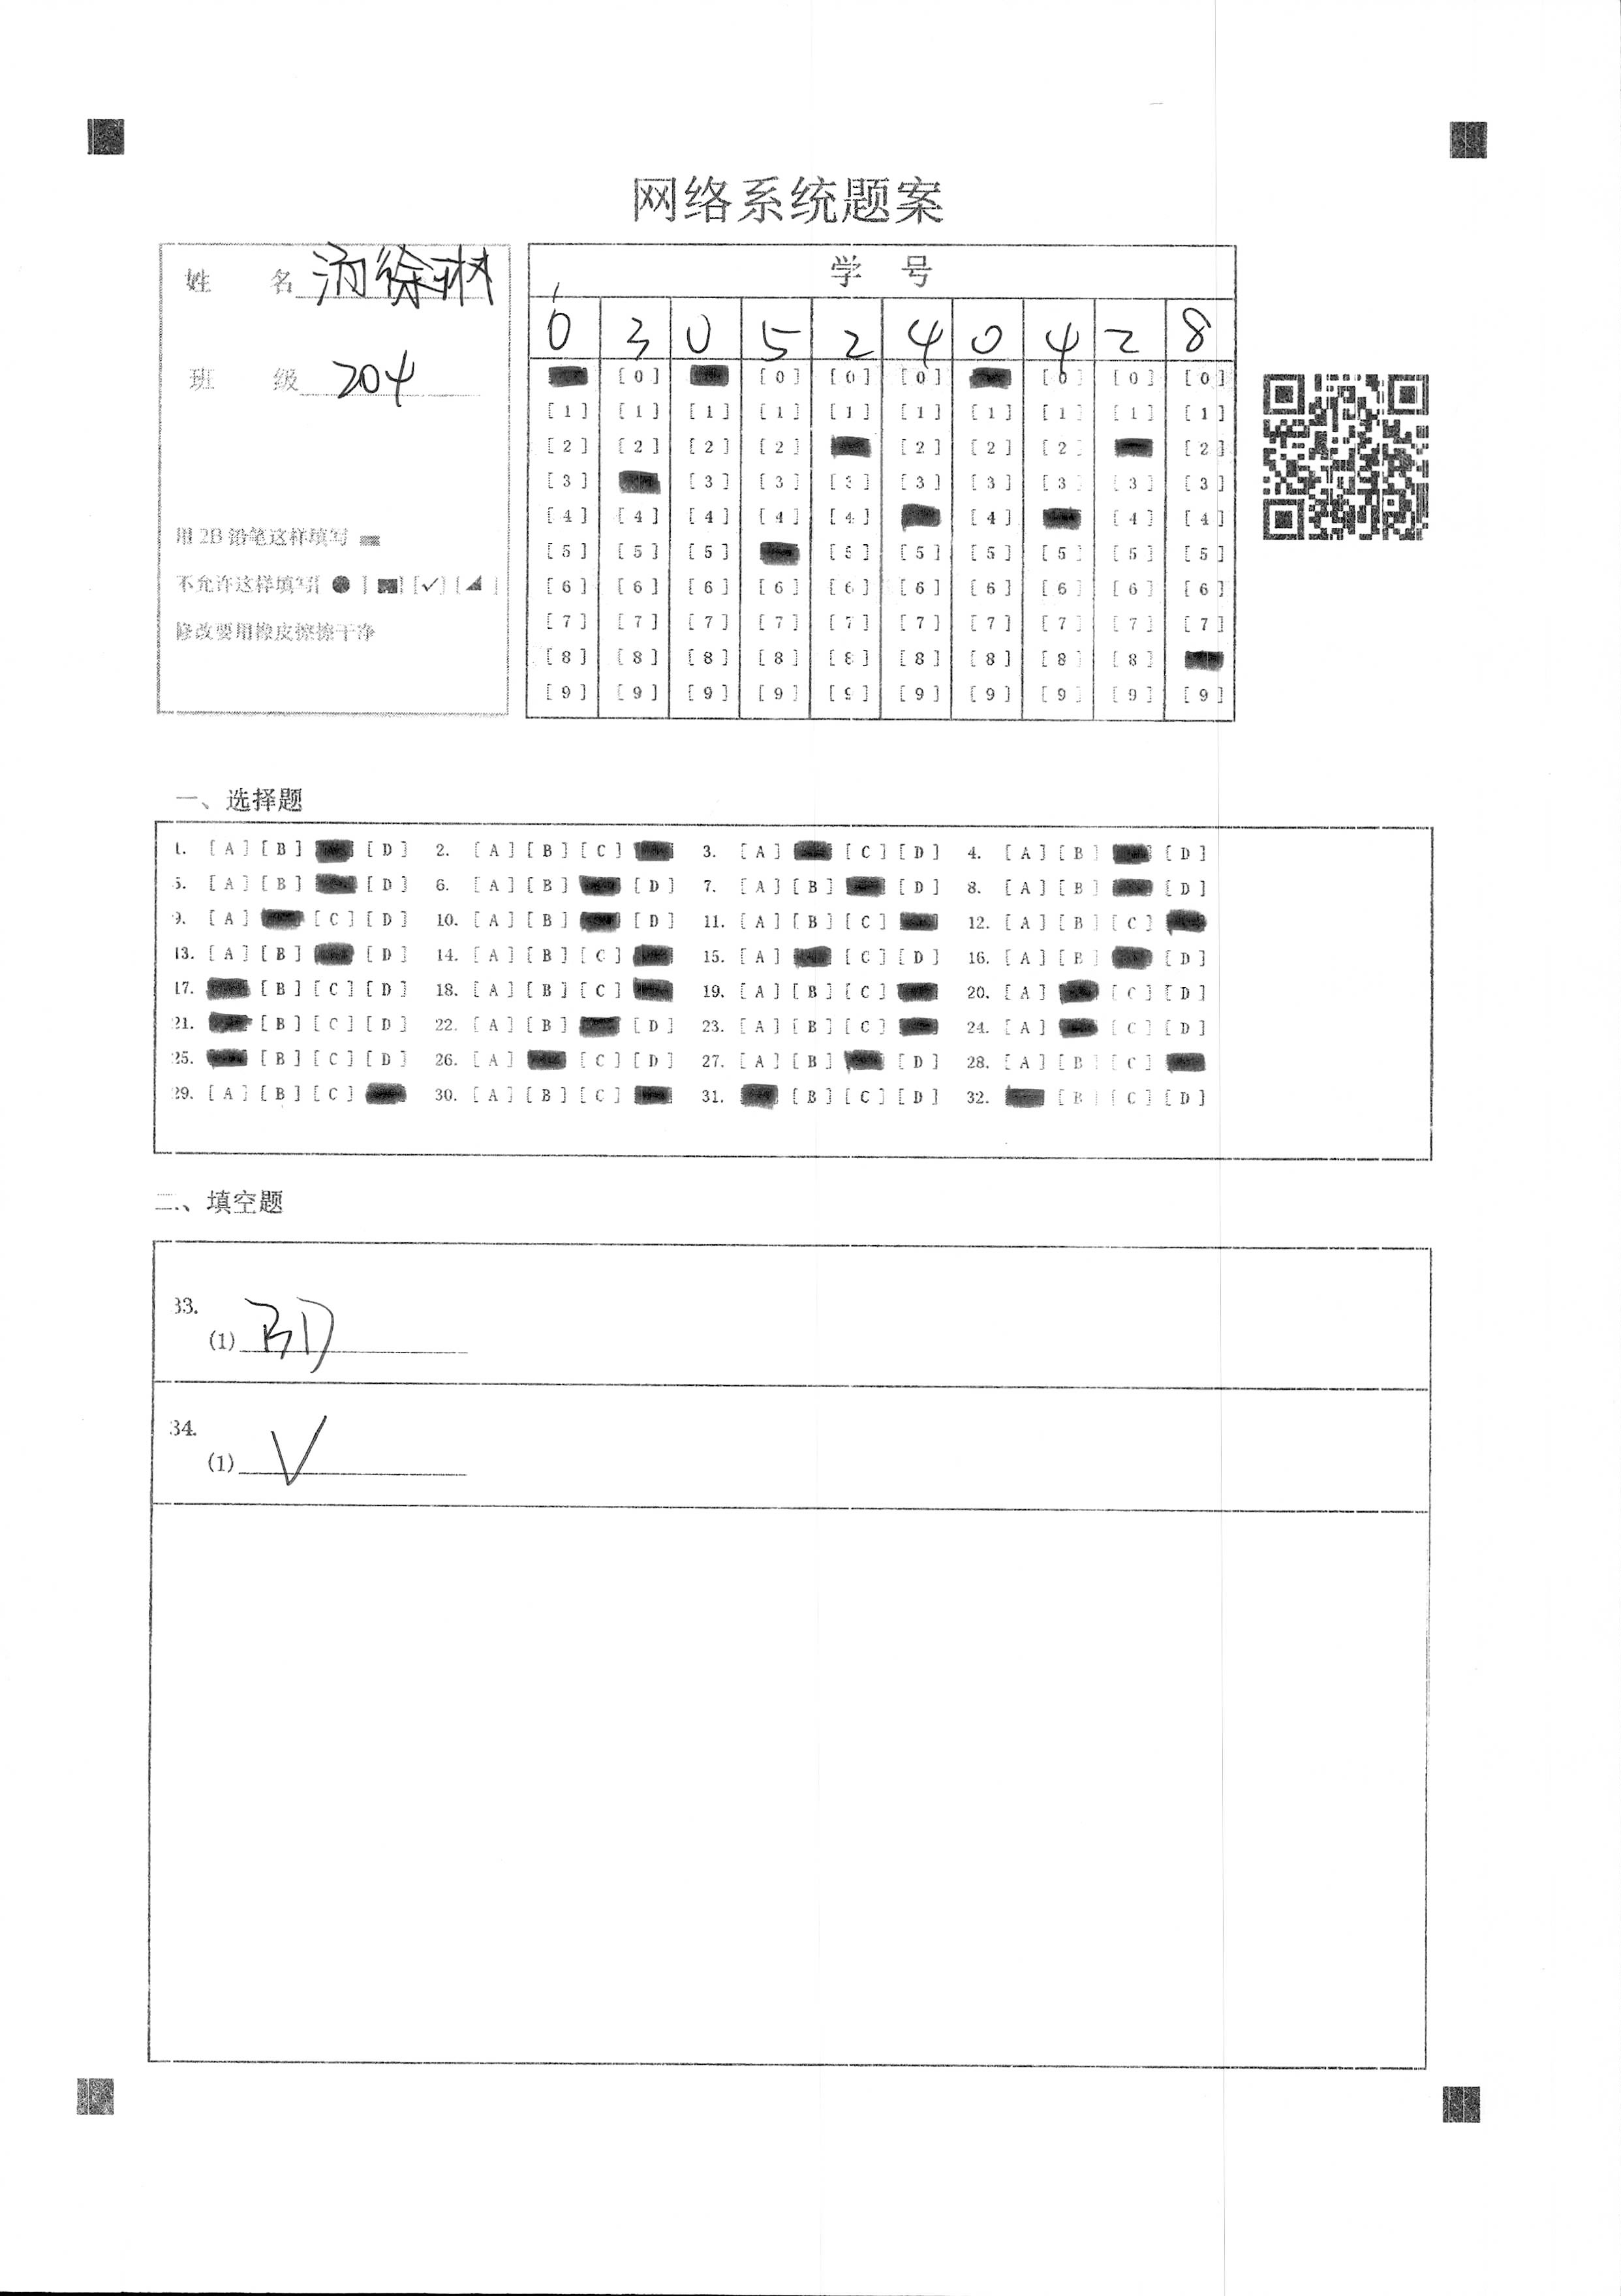 网络系统题案
姓 名 汤徐琳
班 级 204
用 2B 铅笔这样填写
不允许这样填写[ ● ] [■] [✓] [◢ ]
修改要用橡皮擦擦干净
学 号
0 3 0 5 2 4 0 4 2 8
[0] [0] [0] [0] [0] [0] [0]
[1] [1] [1] [1] [1] [1] [1] [1] [1] [1]
[2] [2] [2] [2] [2] [2] [2] [2]
[3] [3] [3] [3] [3] [3] [3] [3] [3]
[4] [4] [4] [4] [4] [4] [4] [4]
[5] [5] [5] [5] [5] [5] [5] [5] [5]
[6] [6] [6] [6] [6] [6] [6] [6] [6] [6]
[7] [7] [7] [7] [7] [7] [7] [7] [7] [7]
[8] [8] [8] [8] [8] [8] [8] [8] [8]
[9] [9] [9] [9] [9] [9] [9] [9] [9] [9]
一、选择题
1. [A] [B] [D] 2. [A] [B] [C] 3. [A] [C] [D] 4. [A] [B] [D]
5. [A] [B] [D] 6. [A] [B] [D] 7. [A] [B] [D] 8. [A] [B] [D]
9. [A] [C] [D] 10. [A] [B] [D] 11. [A] [B] [C] 12. [A] [B] [C]
13. [A] [B] [D] 14. [A] [B] [C] 15. [A] [C] [D] 16. [A] [B] [D]
17. [B] [C] [D] 18. [A] [B] [C] 19. [A] [B] [C] 20. [A] [C] [D]
21. [B] [C] [D] 22. [A] [B] [D] 23. [A] [B] [C] 24. [A] [C] [D]
25. [B] [C] [D] 26. [A] [C] [D] 27. [A] [B] [D] 28. [A] [B] [C]
29. [A] [B] [C] 30. [A] [B] [C] 31. [B] [C] [D] 32. [B] [C] [D]
二、填空题
33.
(1) BD
34.
(1) √